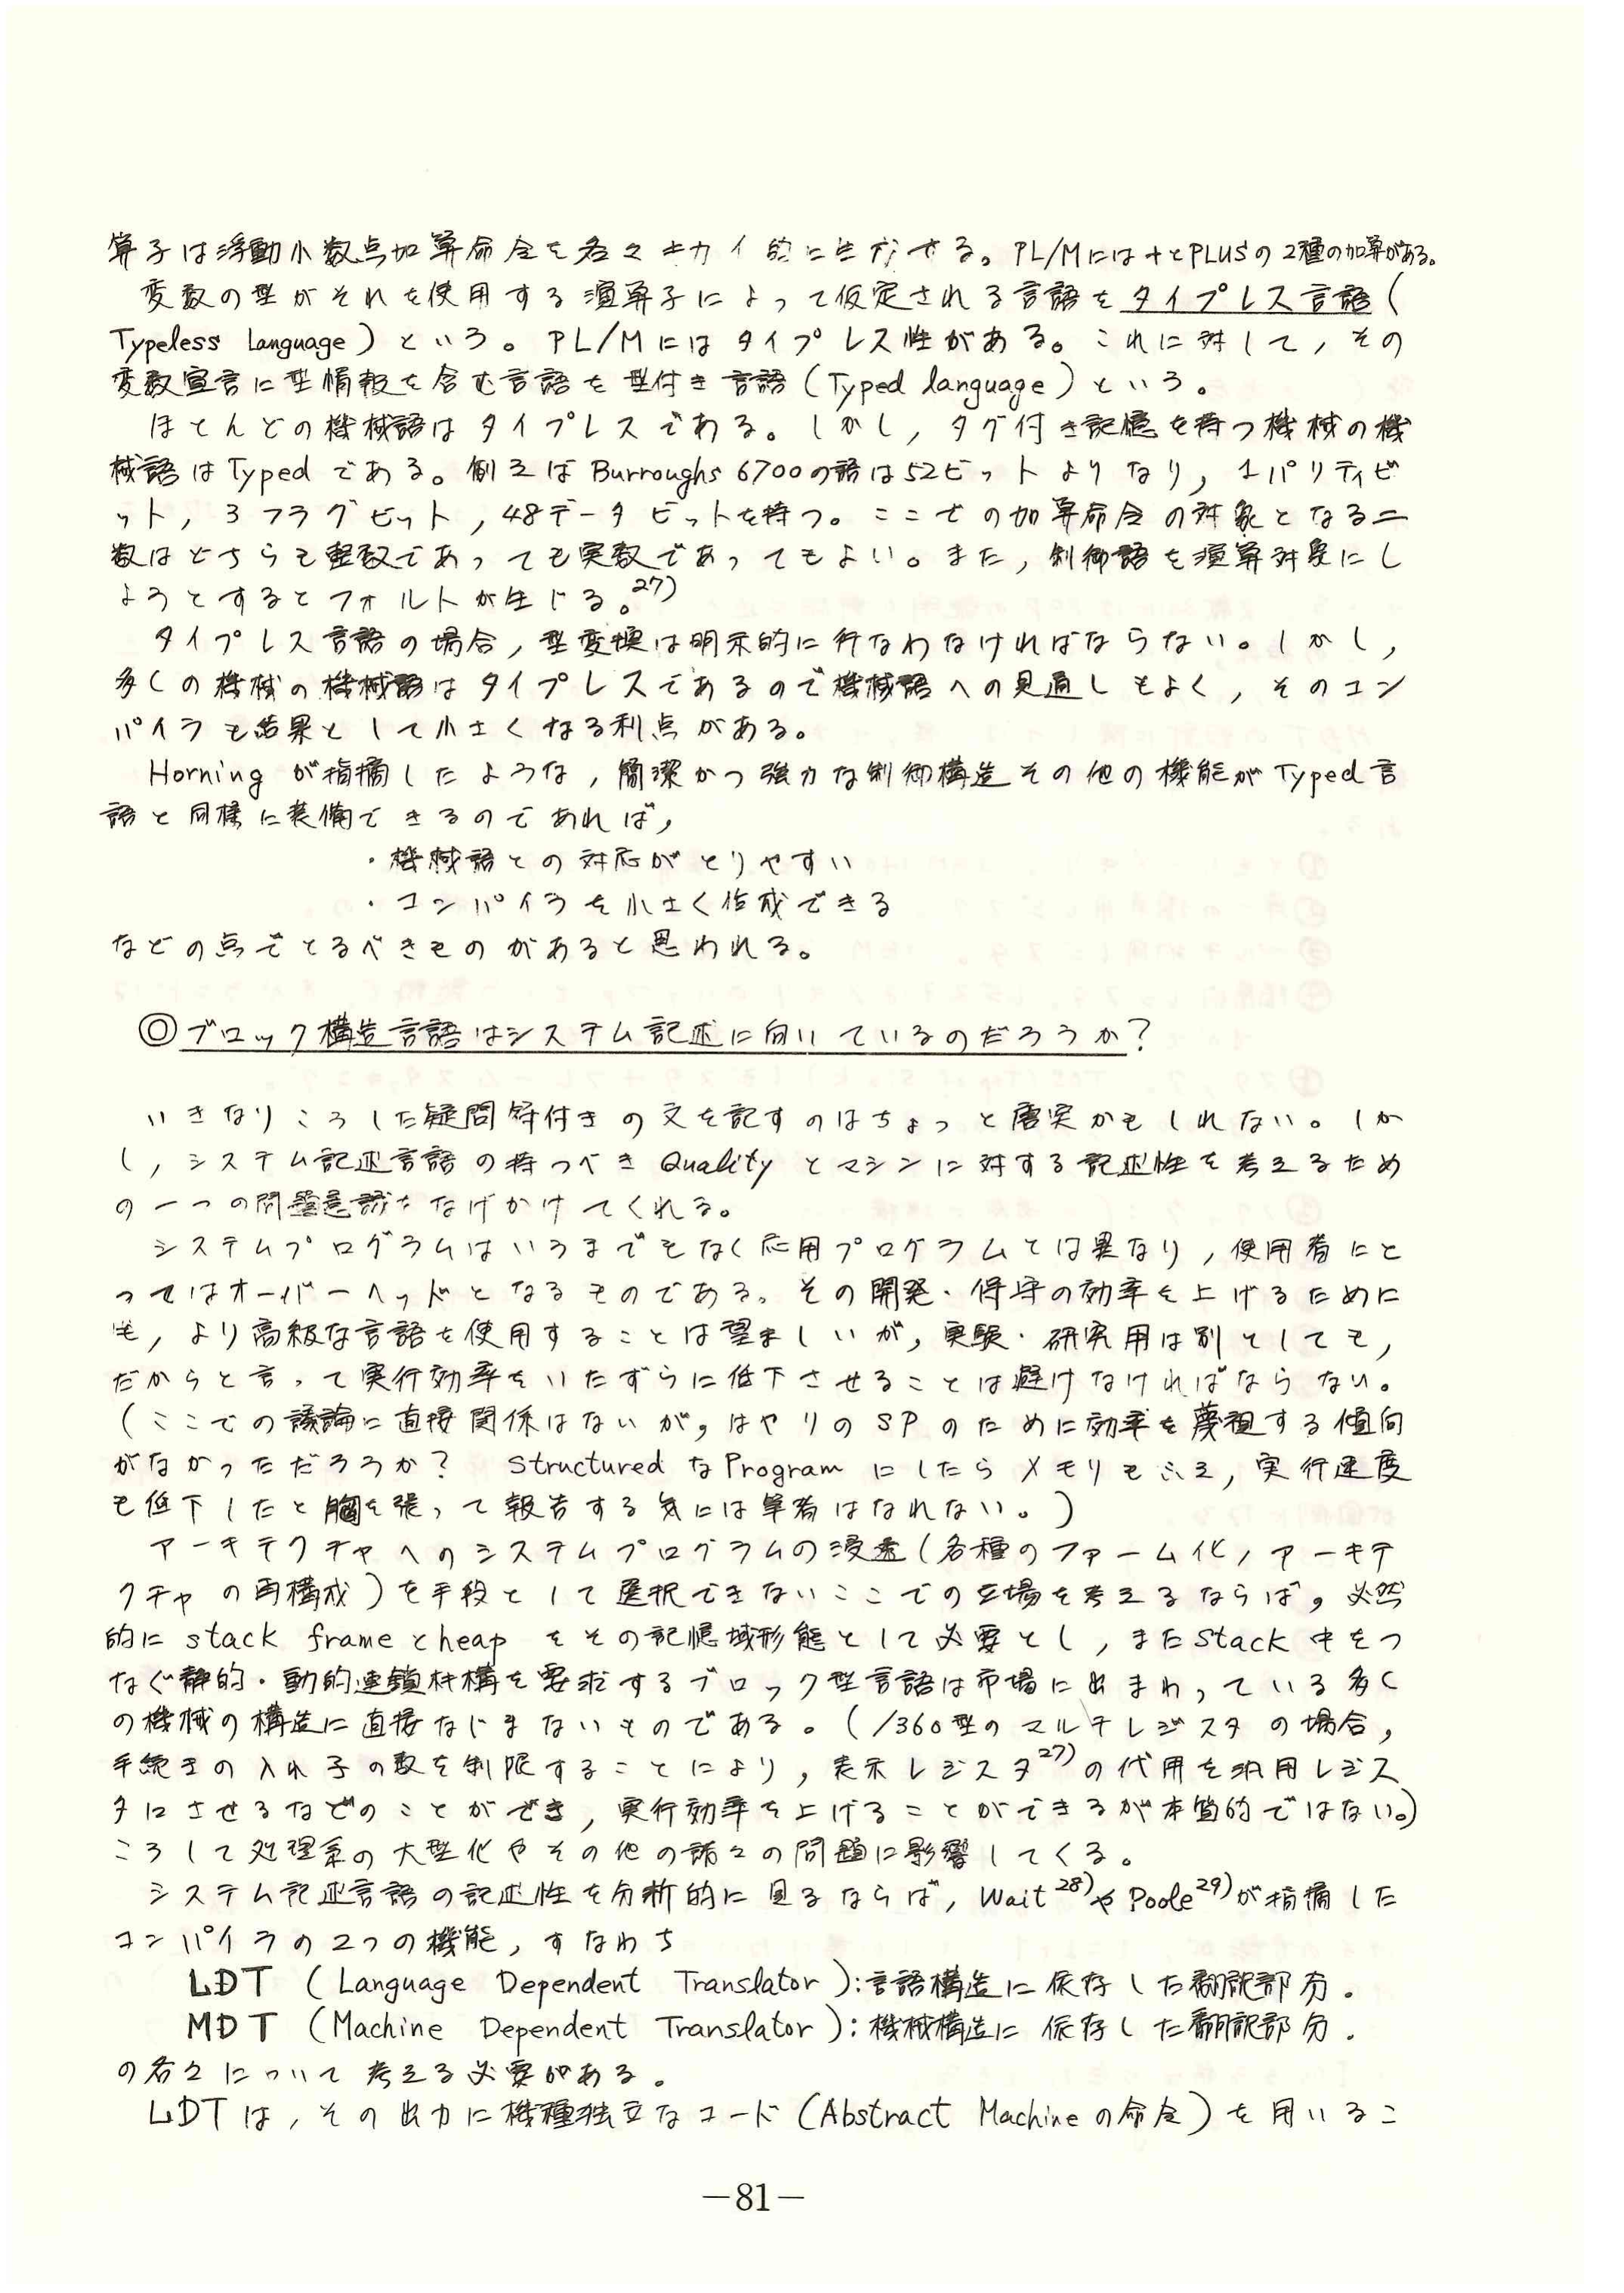 算子は浮動小数点加算命令を各々キカイ的に生成する。PL/Mには+とPLUSの2種の加算がある。
変数の型がそれを使用する演算子によって仮定される言語をタイプレス言語(
Typeless Language)という。PL/Mにはタイプレス性がある。これに対して,その
変数宣言に型情報を含む言語を型付き言語(Typed language)という。
ほとんどの機械語はタイプレスである。しかし,タグ付き記憶を持つ機械の機
械語はTypedである。例えばBurroughs 6700の語は52ビットよりなり,1パリティビ
ット,3フラグビット,48データビットを持つ。ここでの加算命令の対象となる二
数はどちらも整数であっても実数であってもよい。また,制御語を演算対象にし
ようとするとフォルトが生じる。27)
タイプレス言語の場合,型変換は明示的に行なわなければならない。しかし,
多くの機械の機械語はタイプレスであるので機械語への見通しもよく,そのコン
パイラも結果として小さくなる利点がある。
Horningが指摘したような,簡潔かつ強力な制御構造その他の機能がTyped言
語と同様に装備できるのであれば,
・機械語との対応がとりやすい
・コンパイラを小さく作成できる
などの点でとるべきものがあると思われる。
◎ブロック構造言語はシステム記述に向いているのだろうか?
いきなりこうした疑問符付きの文を記すのはちょっと唐突かもしれない。しか
し,システム記述言語の持つべきQualityとマシンに対する記述性を考えるため
の一つの問題意識をなげかけてくれる。
システムプログラムはいうまでもなく応用プログラムとは異なり,使用者にと
ってはオーバーヘッドとなるものである。その開発・保守の効率を上げるために
も,より高級な言語を使用することは望ましいが,実験・研究用は別としても,
だからと言って実行効率をいたずらに低下させることは避けなければならない。
(ここでの議論に直接関係はないが,はやりのSPのために効率を蔑視する傾向
がなかっただろうか? StructuredなProgramにしたらメモリもふえ,実行速度
も低下したと胸を張って報告する気には筆者はなれない。)
アーキテクチャへのシステムプログラムの浸透(各種のファーム化,アーキテ
クチャの再構成)を手段として選択できないここでの立場を考えるならば,必然
的にstack frameとheapをその記憶域形態として必要とし,またStack中をつ
なぐ静的・動的連鎖機構を要求するブロック型言語は市場に出まわっている多く
の機械の構造に直接なじまないものである。(/360型のマルチレジスタの場合,
手続きの入れ子の数を制限することにより,表示レジスタ27)の代用を汎用レジス
タにさせるなどのことができ,実行効率を上げることができるが本質的ではない。)
こうして処理系の大型化やその他の諸々の問題に影響してくる。
システム記述言語の記述性を分析的に見るならば,Wait28)やPoole29)が指摘した
コンパイラの2つの機能,すなわち
LDT (Language Dependent Translator):言語構造に依存した翻訳部分.
MDT (Machine Dependent Translator):機械構造に依存した翻訳部分.
の各々について考える必要がある。
LDTは,その出力に機種独立なコード(Abstract Machineの命令)を用いるこ
—81—